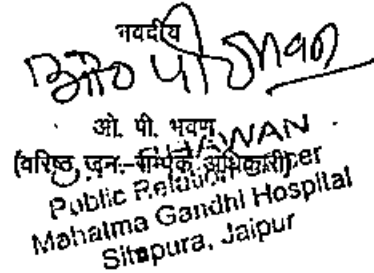 भवदीय
ओ० पी० भवण
ओ. पी. भवण
(वरिष्ठ जन-सम्पर्क अधिकारी)
Public Relation Officer
Mahatma Gandhi Hospital
Sitapura, Jaipur